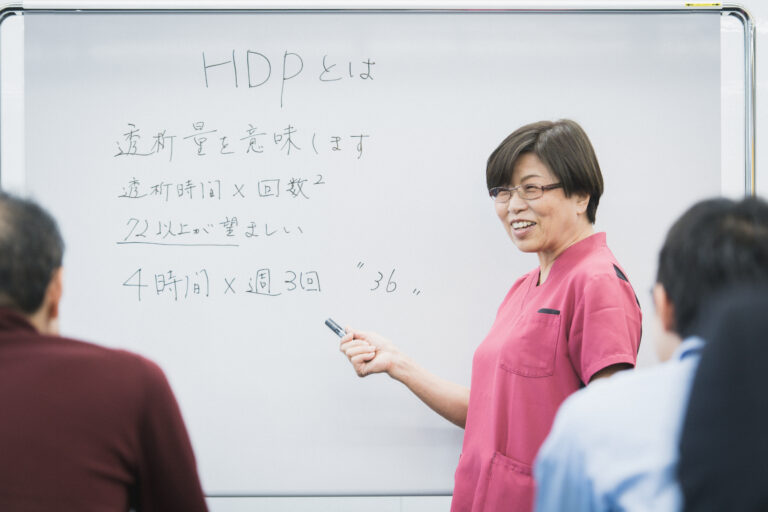 HDPとは
透析量を意味します
透析時間×回数²
72以上が望ましい
4時間×週3回 〝36〟